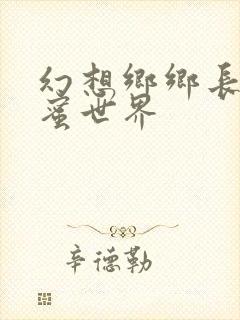 幻想鄉鄉長
蜜世界
辛德勒